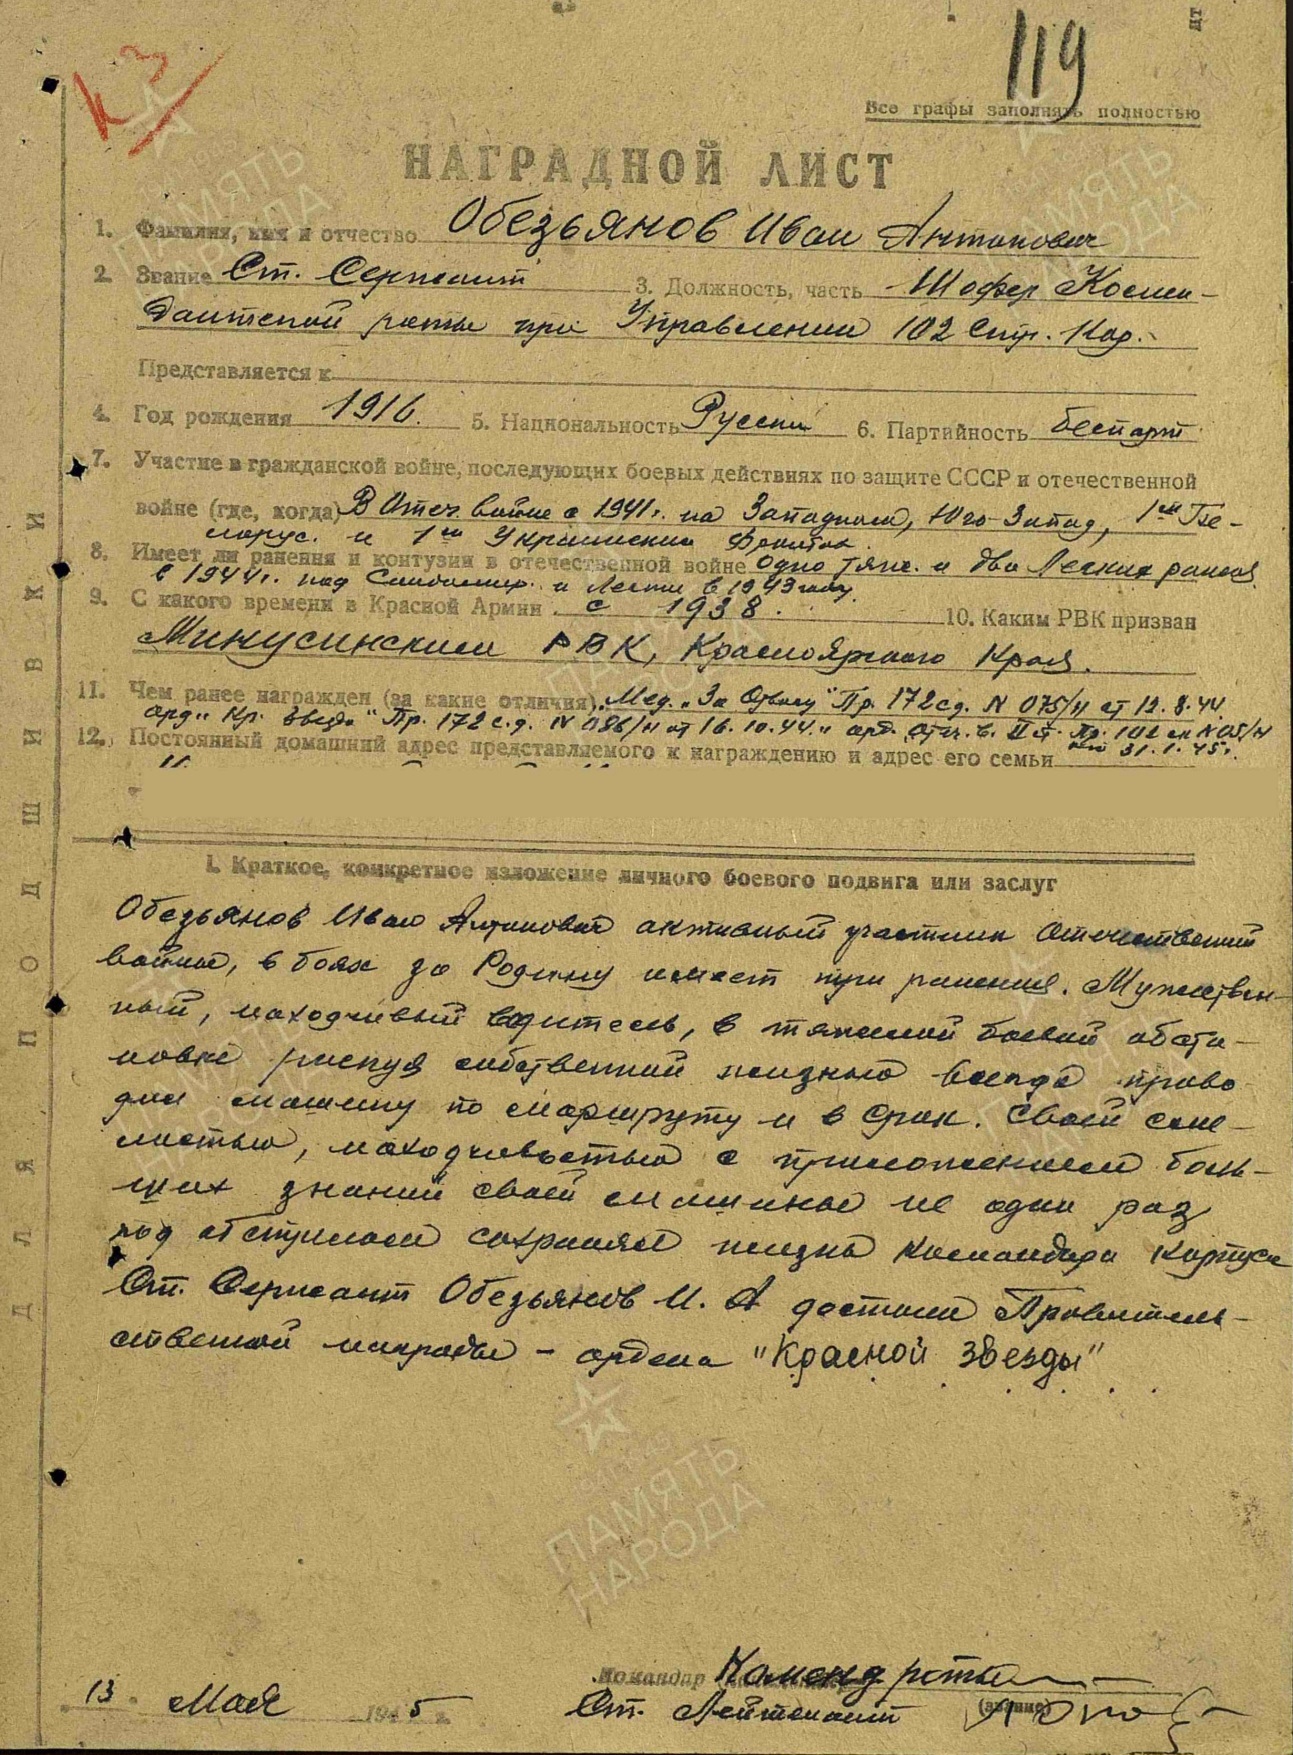 К 3
119
Все графы заполнять полностью
НАГРАДНОЙ ЛИСТ
1. Фамилия, имя и отчество Обезьянов Иван Антонович
2. Звание Ст. Сержант 3. Должность, часть Шофер Комен-
дантской роты при Управлении 102 Стр. Кор.
Представляется к
4. Год рождения 1916. 5. Национальность Русский 6. Партийность беспарт
7. Участие в гражданской войне, последующих боевых действиях по защите СССР и отечественной
войне (где, когда) В Отеч. войне с 1941г. на Западном, Юго-Запад, 1ом Бе-
лорус. и 1ом Украинском фронтах.
8. Имеет ли ранения и контузии в отечественной войне Одно тяж. и два легких ранения
в 1944г. под Сандомир. и легкие в 1943 году.
9. С какого времени в Красной Армии с 1938. 10. Каким РВК призван
Минусинским РВК, Красноярского Края.
11. Чем ранее награжден (за какие отличия) Мед. "За Отвагу" Пр. 172 сд. N 075/н от 12.8.44.
орд. "Кр. Звезда" Пр. 172 с.д. N 086/н от 16.10.44. орд. Отеч. в. II ст. Пр. 102 ск N 05/н
от 31.1.45г.
12. Постоянный домашний адрес представляемого к награждению и адрес его семьи
I. Краткое, конкретное изложение личного боевого подвига или заслуг
Обезьянов Иван Антонович активный участник Отечественной
войны, в боях за Родину имеет три ранения. Мужествен-
ный, находчивый водитель, в тяжелой боевой обста-
новке рискуя собственной жизнью всегда прово
дил машину по маршруту и в срок. Своей сме-
лостью, находчивостью с приложением боль-
ших знаний своей машины не один раз
под обстрелом сохранял жизнь командира корпуса
Ст. Сержант Обезьянов И. А достоин Правитель-
ственной награды - ордена "Красной Звезды"
Командир Команд роты
13 Мая 1945 г.
Ст. Лейтенант (звание)
ДЛЯ ПОДШИВКИ
ПАМЯТЬ НАРОДА
1941-1945